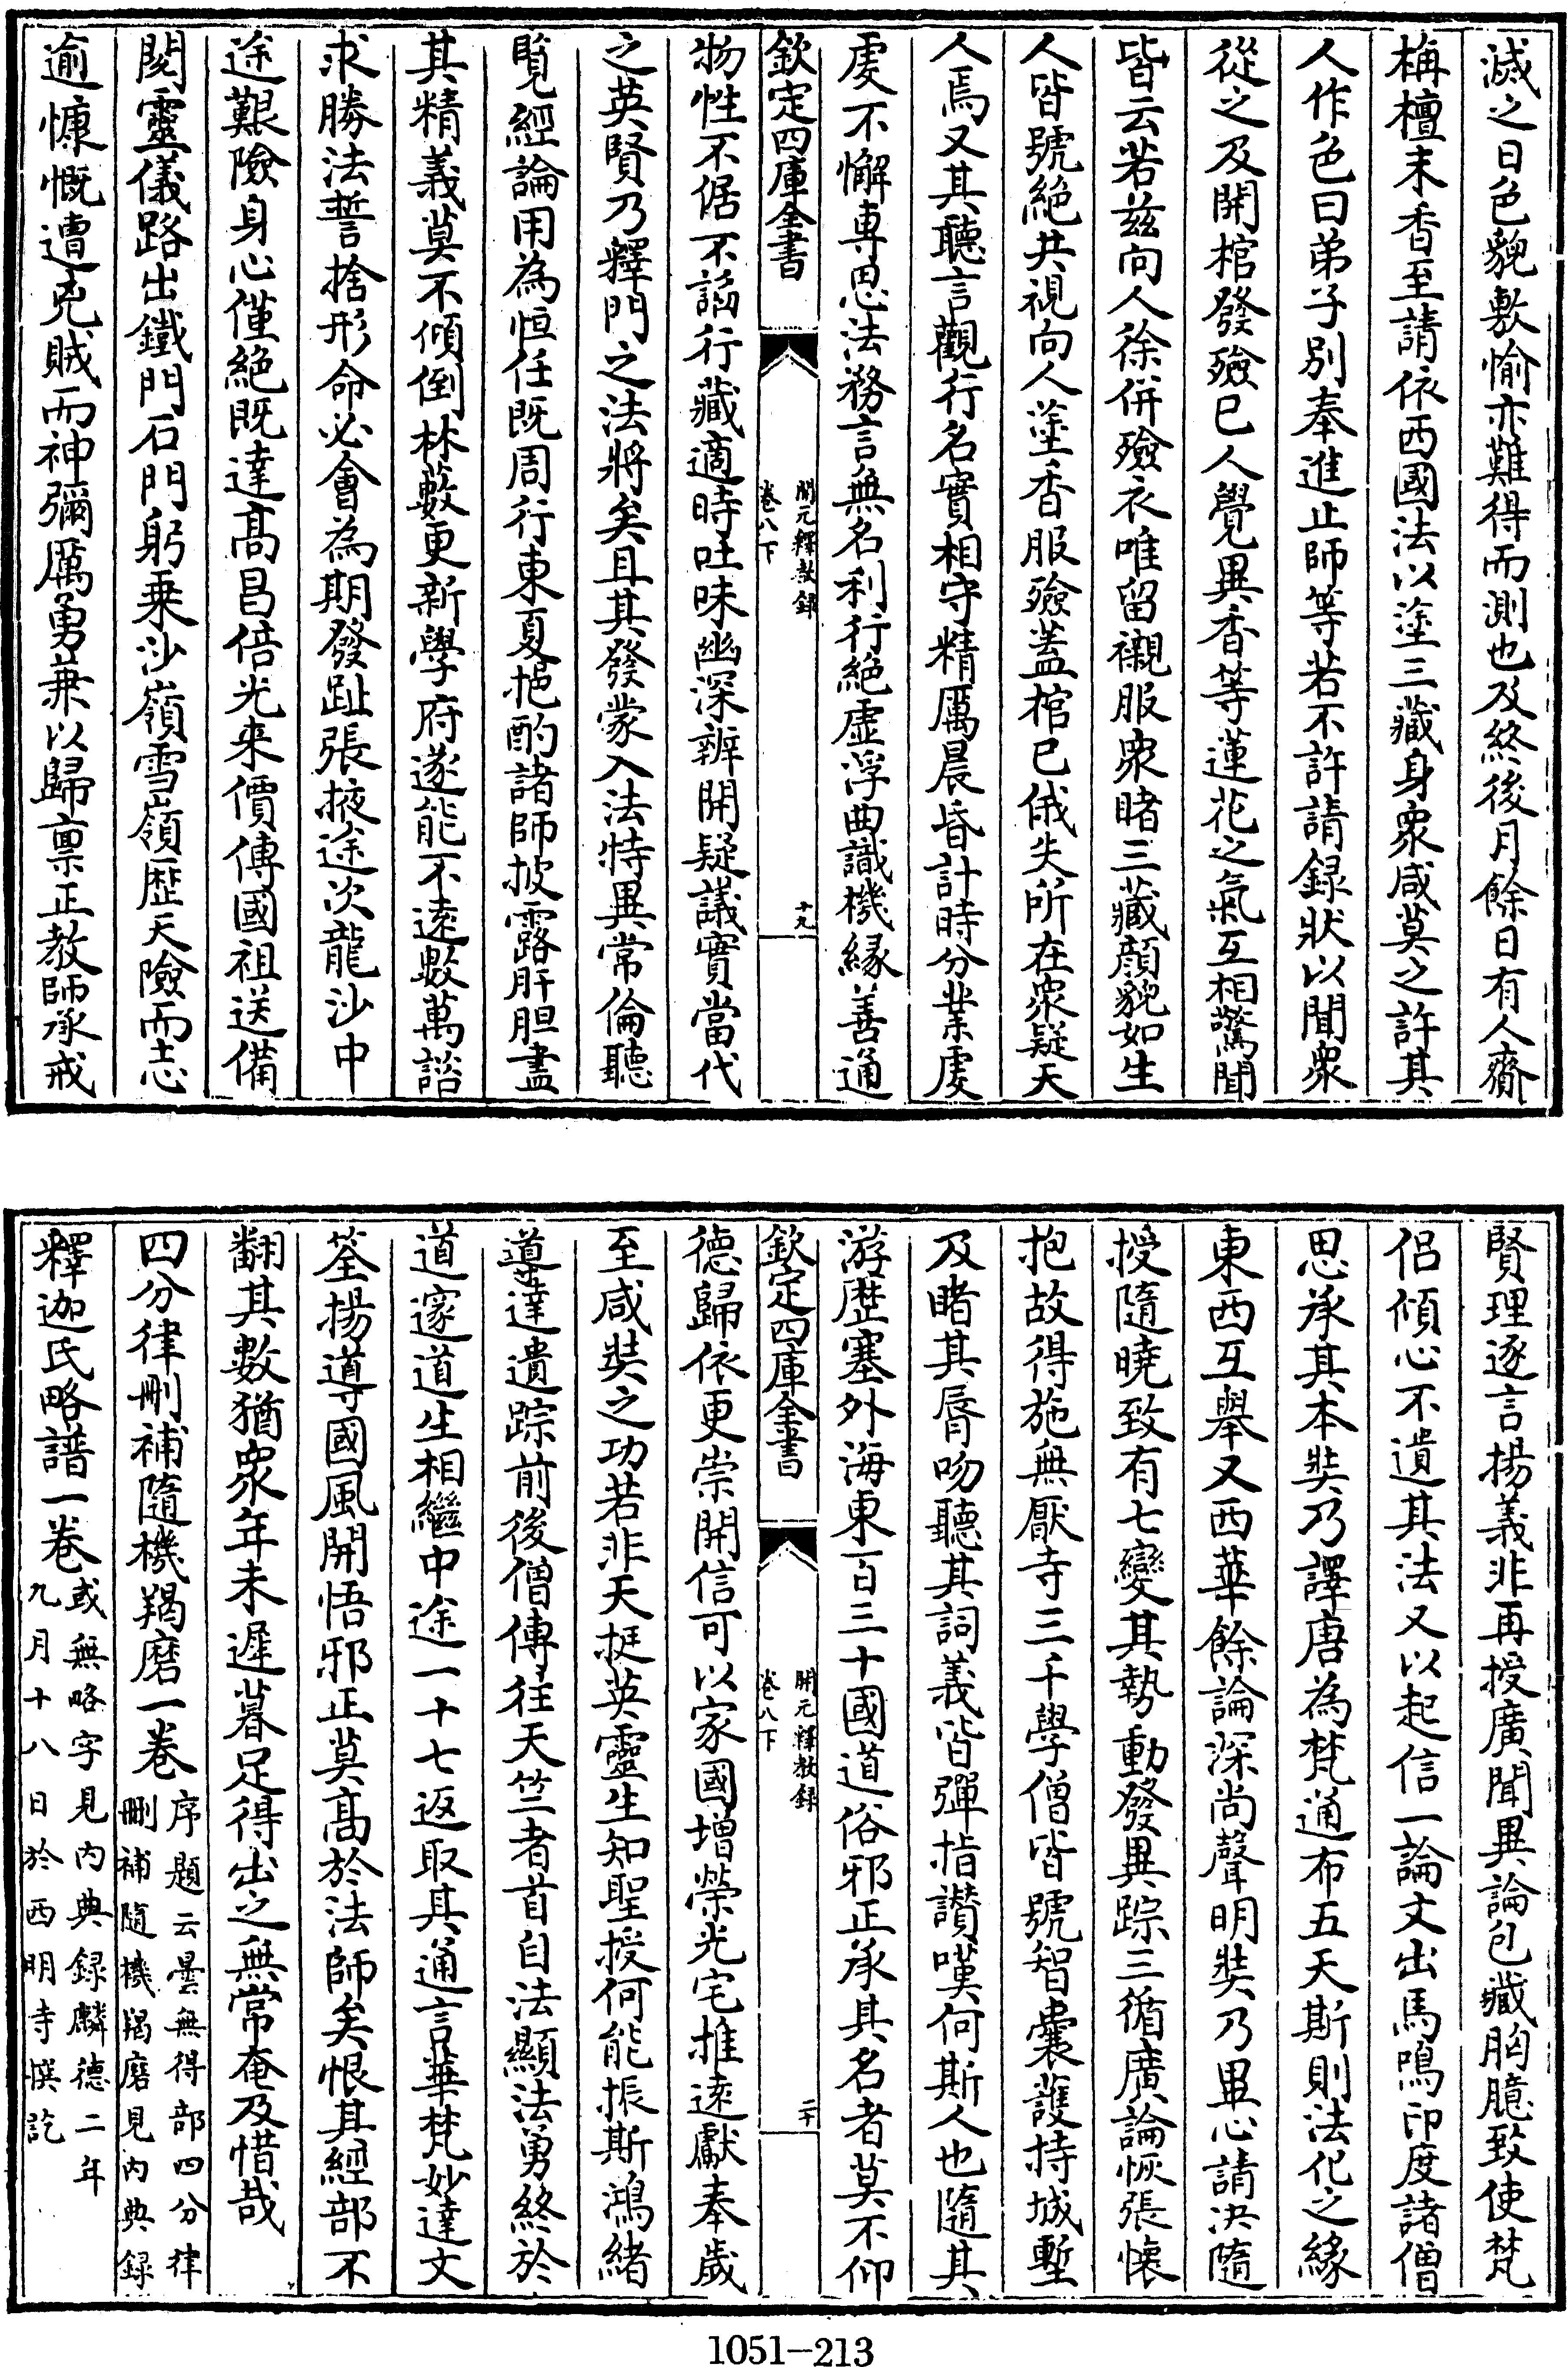 滅之日色貌敷愉亦難得而測也及終後月餘日有人齎
栴檀末香至請依西國法以塗三藏身衆咸莫之許其
人作色曰弟子别奉進止師等若不許請録狀以聞衆
從之及開棺發殮已人覺異香等蓮花之氣互相驚聞
皆云若兹向人徐併殮衣唯留襯服衆睹三藏顔貌如生
人皆號絶共視向人塗香服殮蓋棺已俄失所在衆疑天
人焉又其聽言觀行名實相守精厲晨昏計時分業虔
虔不懈專思法務言無名利行絶虚浮曲識機緣善通
欽定四庫全書
開元釋教録
卷八下
十九
物性不倨不謟行藏適時吐味幽深辨開疑議實當代
之英賢乃釋門之法將矣且其發蒙入法特異常倫聽
覽經論用為恒任既周行東夏挹酌諸師披露肝胆盡
其精義莫不傾倒林藪更新學府遂能不遠數萬諮
求勝法誓捨形命必會為期發趾張掖途次龍沙中
途艱險身心僅絶既達髙昌倍光來價傳國祖送備
閲靈儀路出鐵門石門躬乗沙嶺雪嶺歷天險而志
逾慷慨遭兇賊而神彌厲勇兼以歸禀正教師承戒
賢理逐言揚義非再授廣聞異論包藏胸臆致使梵
侣傾心不遺其法又以起信一論文出馬鳴印度諸僧
思承其本奘乃譯唐為梵通布五天斯則法化之緣
東西互舉又西華餘論深尚聲明奘乃卑心請決隨
授隨曉致有七變其勢動發異踪三循廣論恢張懷
抱故得施無厭寺三千學僧皆號智囊護持城塹
及睹其脣吻聽其詞義皆彈指讃嘆何斯人也隨其
游歴塞外海東百三十國道俗邪正承其名者莫不仰
欽定四庫全書
開元釋教録
卷八下
二十
德歸依更崇開信可以家國增榮光宅推遠獻奉歲
至咸奘之功若非天挺英靈生知聖授何能振斯鴻緒
導達遺踪前後僧傳往天竺者首自法顯法勇終於
道邃道生相繼中途一十七返取其通言華梵妙達文
筌揚導國風開悟邪正莫髙於法師矣恨其經部不
翻其數猶衆年未遲暮足得出之無常奄及惜哉
四分律刪補隨機羯磨一卷
序題云曇無得部四分律
刪補隨機羯磨見内典録
釋迦氏略譜一卷
或無略字見内典録麟德二年
九月十八日於西明寺撰訖
1051-213